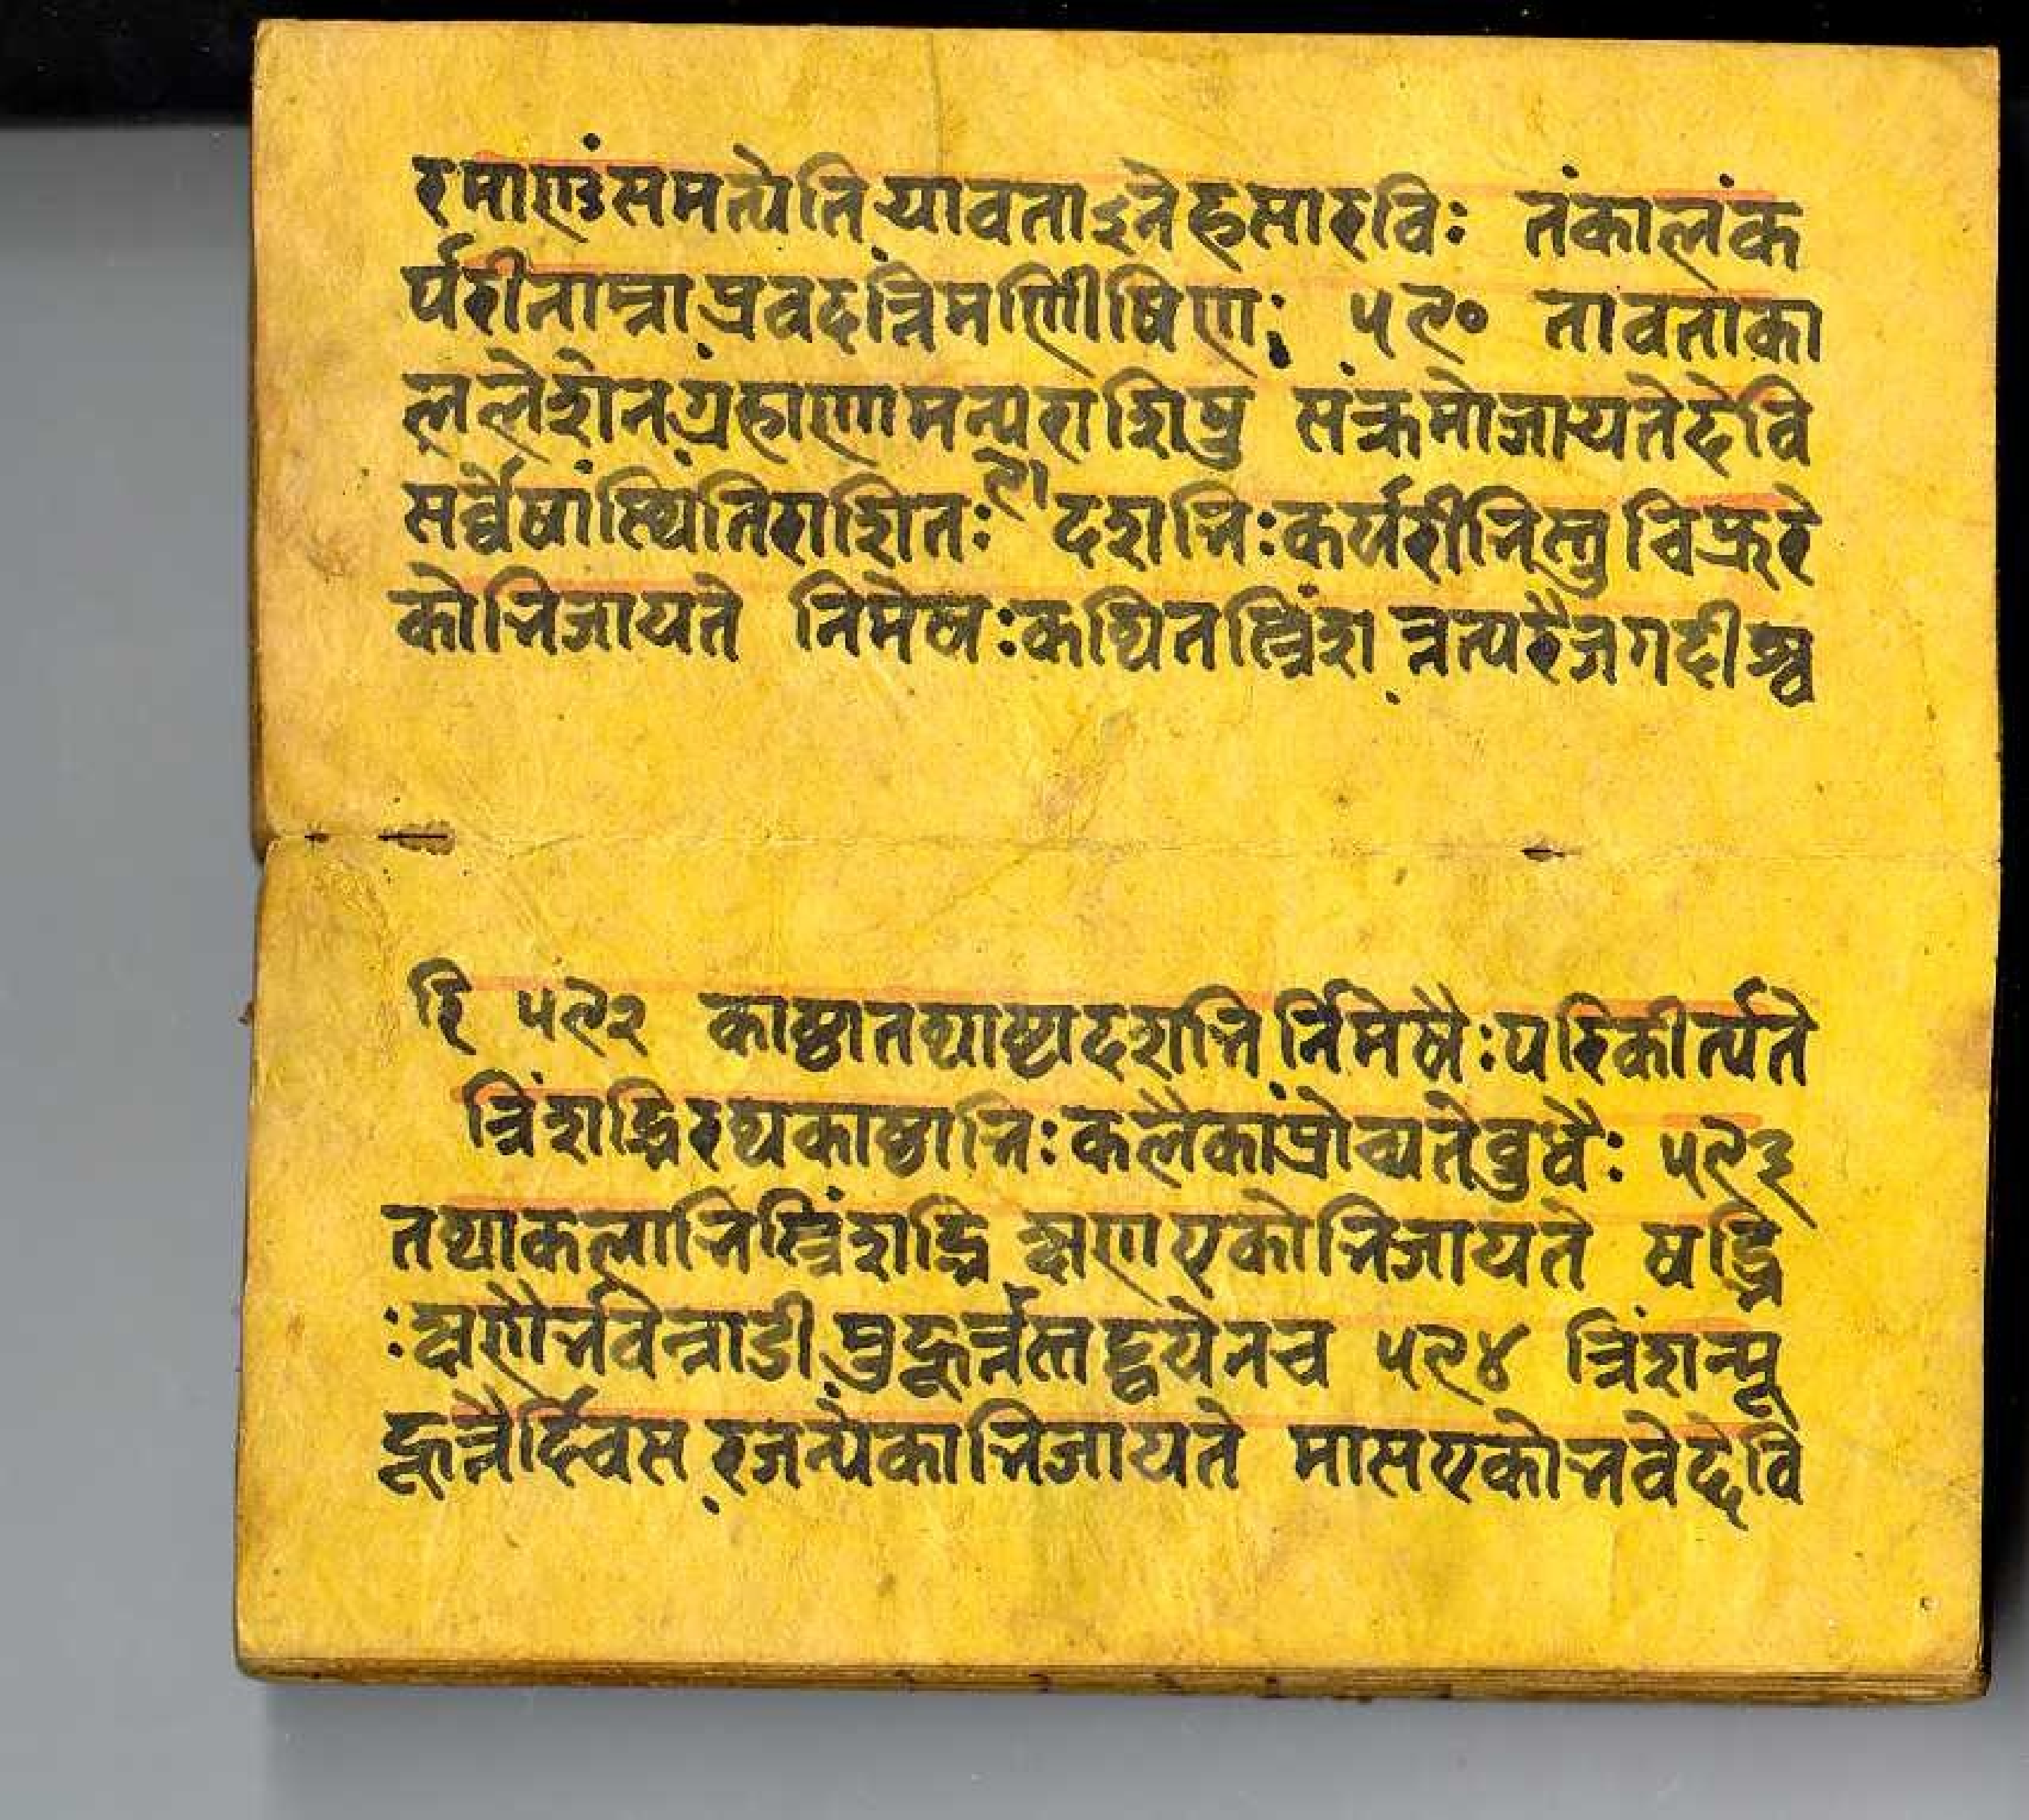 रमाणुंसमत्येतियावताऽनेहसारविः तंकालंक
र्परीनाम्नाप्रवदन्तिमणीषिणः ५९० तावताका
ललेशेनग्रहाणामन्यराशिषु संक्रमोजायतेदेवि
सर्वेषांस्थितिराशितः ९१ दशभिःकर्परीभिस्तु चिप्फुरे
कोभिजायते निमेषःकथितस्त्रिंश त्तत्परैजगदीश्व
रि ५९२ काष्ठातथाष्टादशभि र्निमेषैःपरिकीर्त्यते
त्रिंशद्भिरथकाष्ठाभिःकलैकाप्रोच्यतेवुधैः ५९३
तथाकलाभिस्त्रिंशद्भि क्षणएकोभिजायते षड्भि
ःक्षणैर्भवेन्नाडी मुहूर्त्तस्तद्द्वयेनच ५९४ त्रिंशन्मू
हूर्त्तैर्द्दिवस रजन्येकाभिजायते मासएकोभवेद्देवि